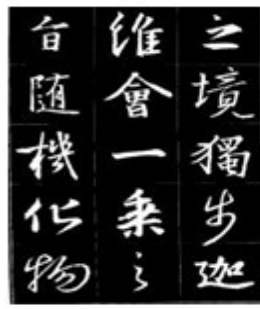 之境獨步迦
維會一乘之
旨隨機化物